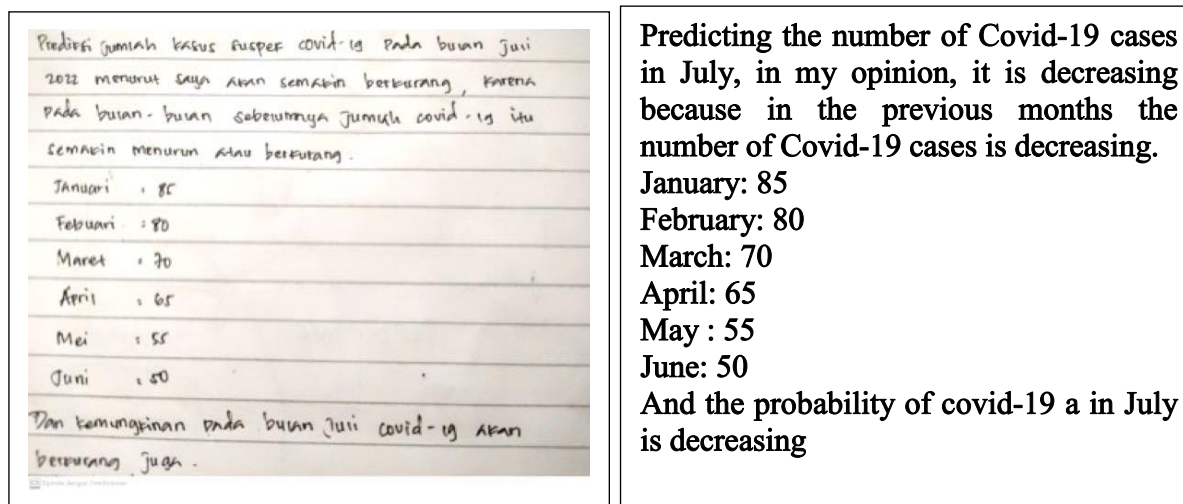 Prediksi jumlah kasus suspek covid-19 pada bulan Juli
2022 menurut saya akan semakin berkurang, karena
pada bulan-bulan sebelumnya jumlah covid-19 itu
semakin menurun atau berkurang.
Januari : 85
Febuari : 80
Maret : 70
April : 65
Mei : 55
Juni : 50
Dan kemungkinan pada bulan Juli covid-19 akan
berkurang juga.
Predicting the number of Covid-19 cases
in July, in my opinion, it is decreasing
because in the previous months the
number of Covid-19 cases is decreasing.
January: 85
February: 80
March: 70
April: 65
May : 55
June: 50
And the probability of covid-19 a in July
is decreasing